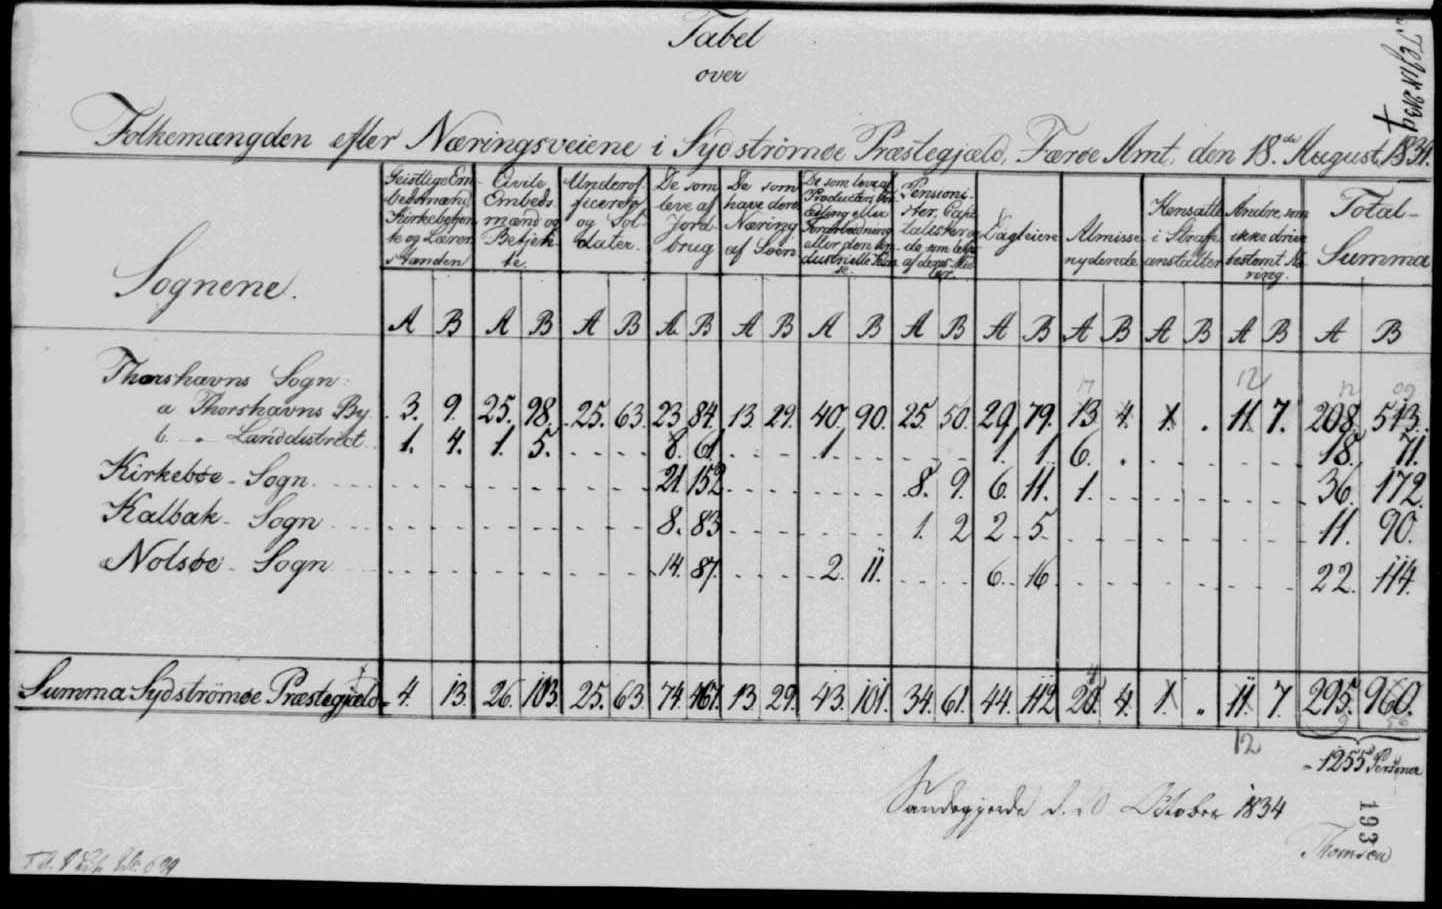 Tabel
over
Folkemængden efter Næringsveiene i Sydströmöe Præstegjæld, Færøe Amt, den 18.de August 1834.
Sognene. Geistlige Embedsmænd, Kirkebetjente og Lærerstanden Civile Embedsmænd og Betjente. Underofficerer og Soldater. De som leve af Jordbrug De som have deres Næring af Søen De som leve af Producters Forædling eller Forarbeidning eller den industrielle Pensionister, Capitalister og de som leve af deres Midler Dagleiere Almissenydende Hensatte i Straffeanstalter Andre, som ikke drive bestemt Næring. Total-Summa
A B A B A B A B A B A B A B A B A B A B A B A B
Thorshavns Sogn
12
a Thorshavns By 3. 9. 25. 98. 25. 63. 23 84. 13. 29. 40. 90. 25. 50. 29. 79. 13. 4. 1. . 11. 7. 208. 513.
b " Landdistrict 1. 4. 1. 5. 8. 61. 1 1. 1. 6. . 18. 71.
Kirkebøe Sogn 21. 152 8. 9. 6. 11. 1. 36. 172.
Kalbak Sogn 8. 83 1. 2 2 5. 11. 90.
Nolsøe Sogn 14. 87. 2. 11. 6. 16 22. 114.
Summa Sydströmöe Præstegjæld 4. 13. 26. 103. 25. 63. 74. 467. 13 29. 43. 101. 34. 61. 44. 112 20. 4. 1. " 11. 7. 295. 960.
12
1255 Personer
Sandegjerde d. October 1834
193
Thomsen